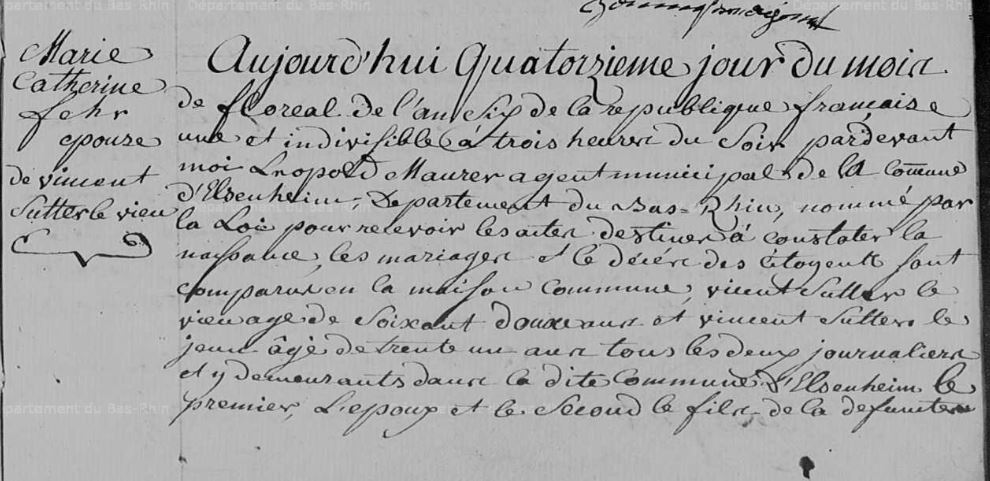 Département du Bas-Rhin Département du Bas-Rhin Département du Bas-Rhin
Marie
Catherine
fehr
epouse
de vincent
Sutter le vieu
Aujourd'hui Quatorzieme jour du mois
de floreal de l'an Six de la republique française
une et indivisible à trois heures du Soir pardevant
moi Leopold Maurer agent municipal de la Comune
d'Elsenheim, Departement du Bas=Rhin, nommé par
la Loie pour recevoir les actes destines à constater la
naissance, les mariages et le décés des Citoyents sont
comparus en la maison Commune, vicent Sutter le
vieu age de Soixant douxe ans et vincent Sutter le
jeun âgé de trente un ans tous les deux journaliers
et y demeurants dans la dite Commune d'Elsenheim le
premier, L'epoux et le Second le fils de la defuntes